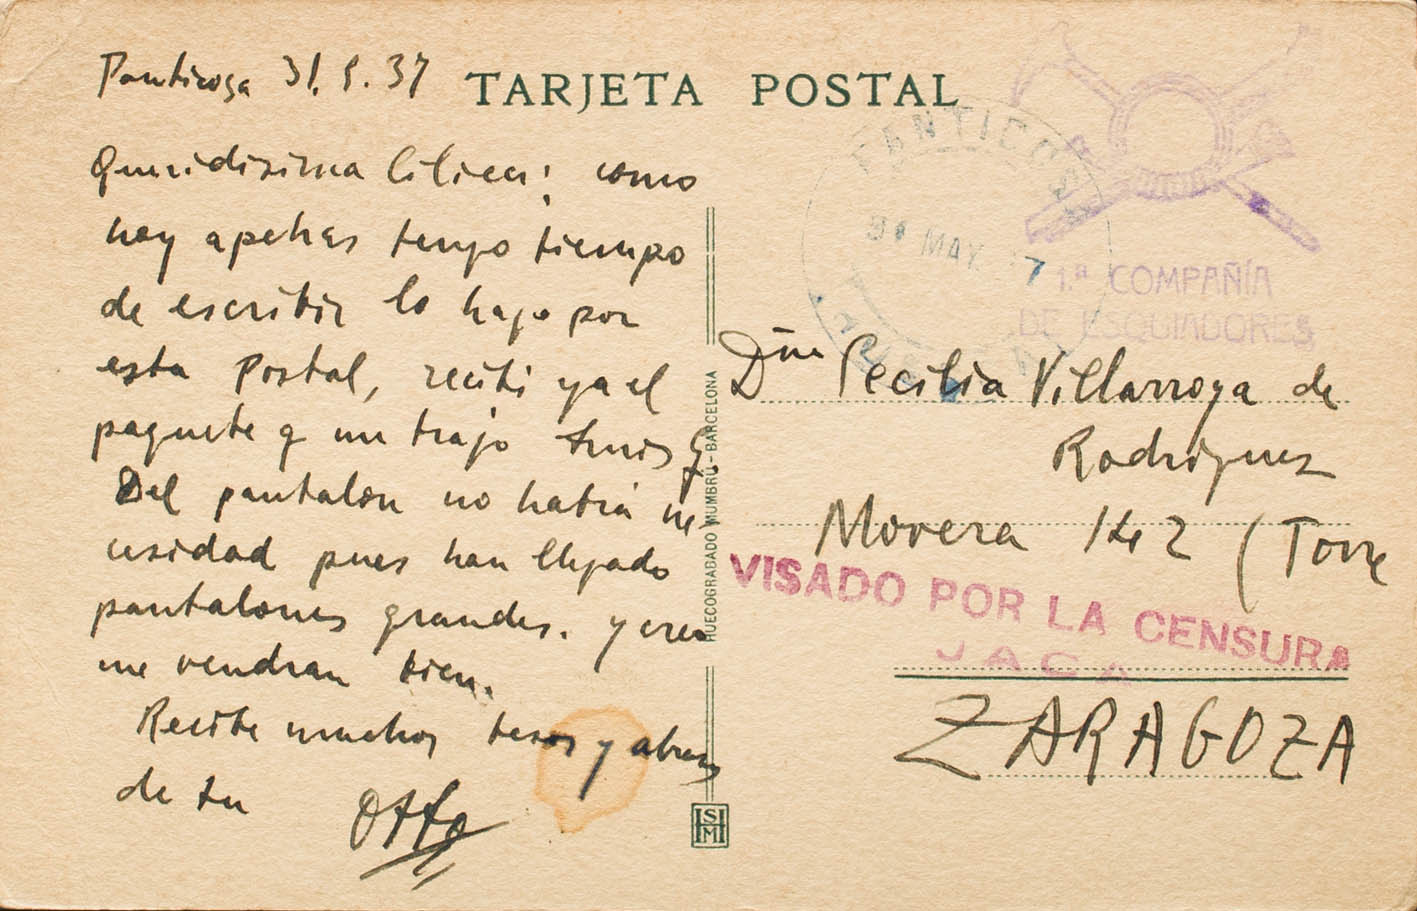 Panticosa 31.5.37
TARJETA POSTAL
Queridisima Cilieci: como
hoy apenas tengo tiempo
de escribir lo hago por
esta Postal, recibi ya el
paquete q me trajo Luis G.
Del pantalon no habrá ne-
cesidad pues han llegado
pantalones grandes. y creo
me vendran bien.
Recibe muchos besos y abrazos
de tu Otto
HUECOGRABADO MUMBRÚ-BARCELONA
HSIM
PANTICOSA
31 MAY. 37
HUESCA
1.ª COMPAÑÍA
DE ESQUIADORES
Dña Cecilia Villarroya de
Rodriguez
Movera 142 (Torre
VISADO POR LA CENSURA
JACA
ZARAGOZA